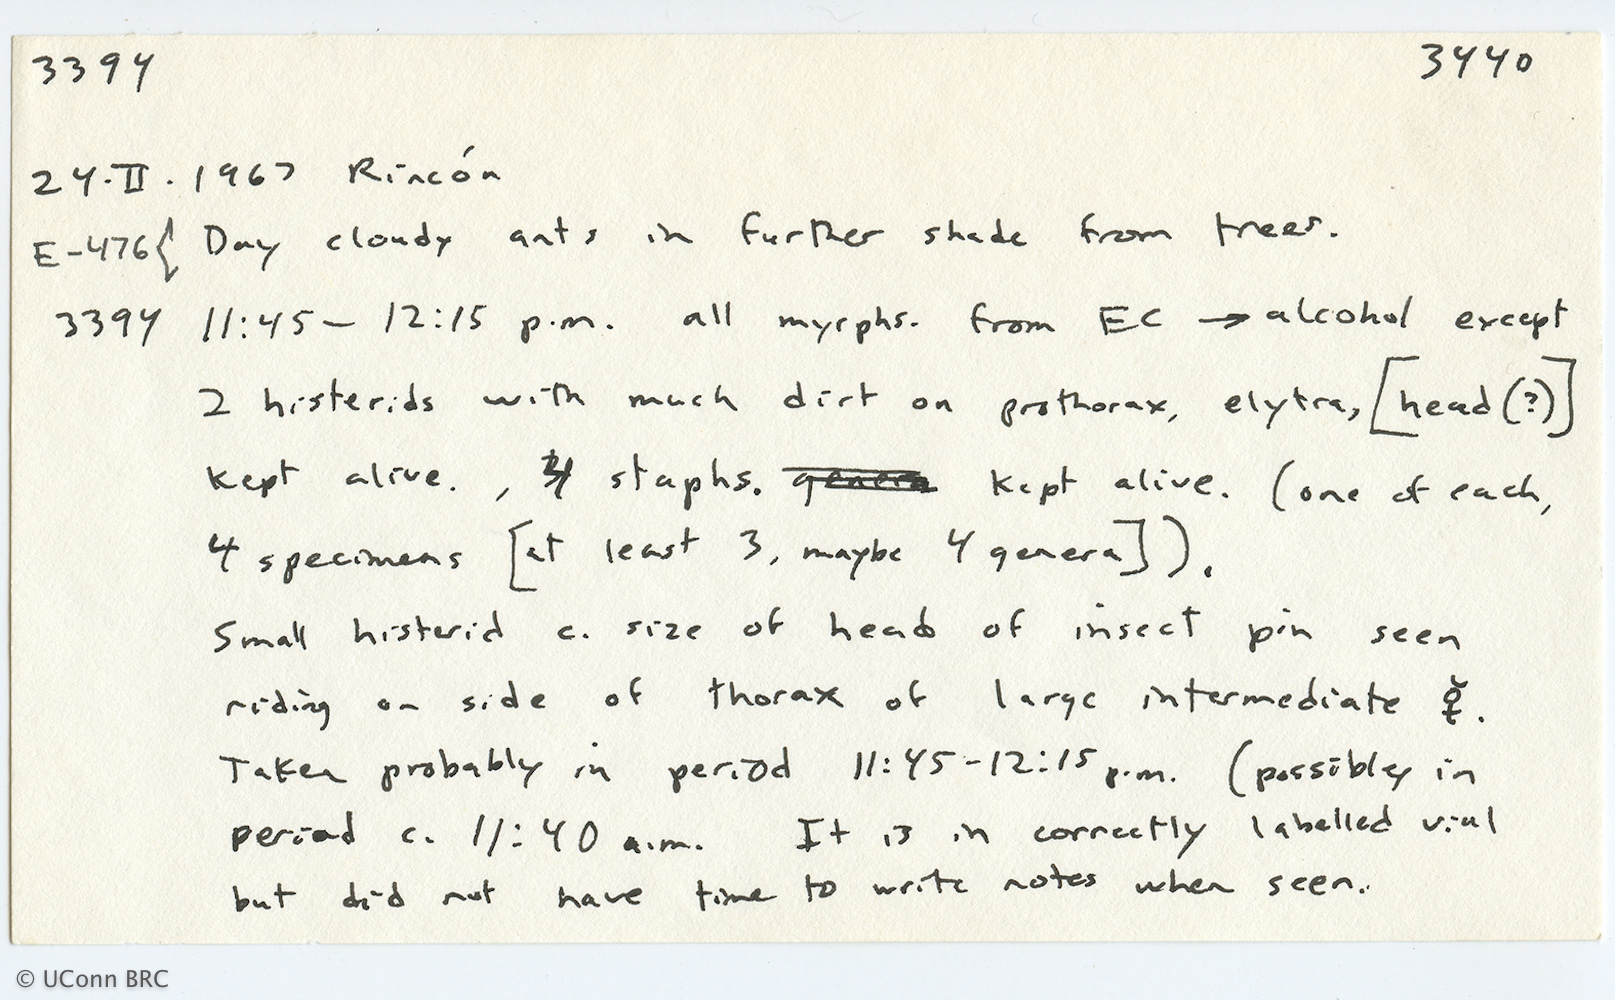 3394 3440
24.II.1967 Rincón
E-476{ Day cloudy ants in further shade from trees.
3394 11:45 - 12:15 p.m. all myrphs. from EC → alcohol except
2 histerids with much dirt on prothorax, elytra, [head (?)]
kept alive. , 4 staphs. genera kept alive. (one of each,
4 specimens [at least 3, maybe 4 genera]).
Small histerid c. size of head of insect pin seen
riding on side of thorax of large intermediate ☿.
Taken probably in period 11:45-12:15 p.m. (possibly in
period c. 11:40 a.m. It is in correctly labelled vial
but did not have time to write notes when seen.
© UConn BRC